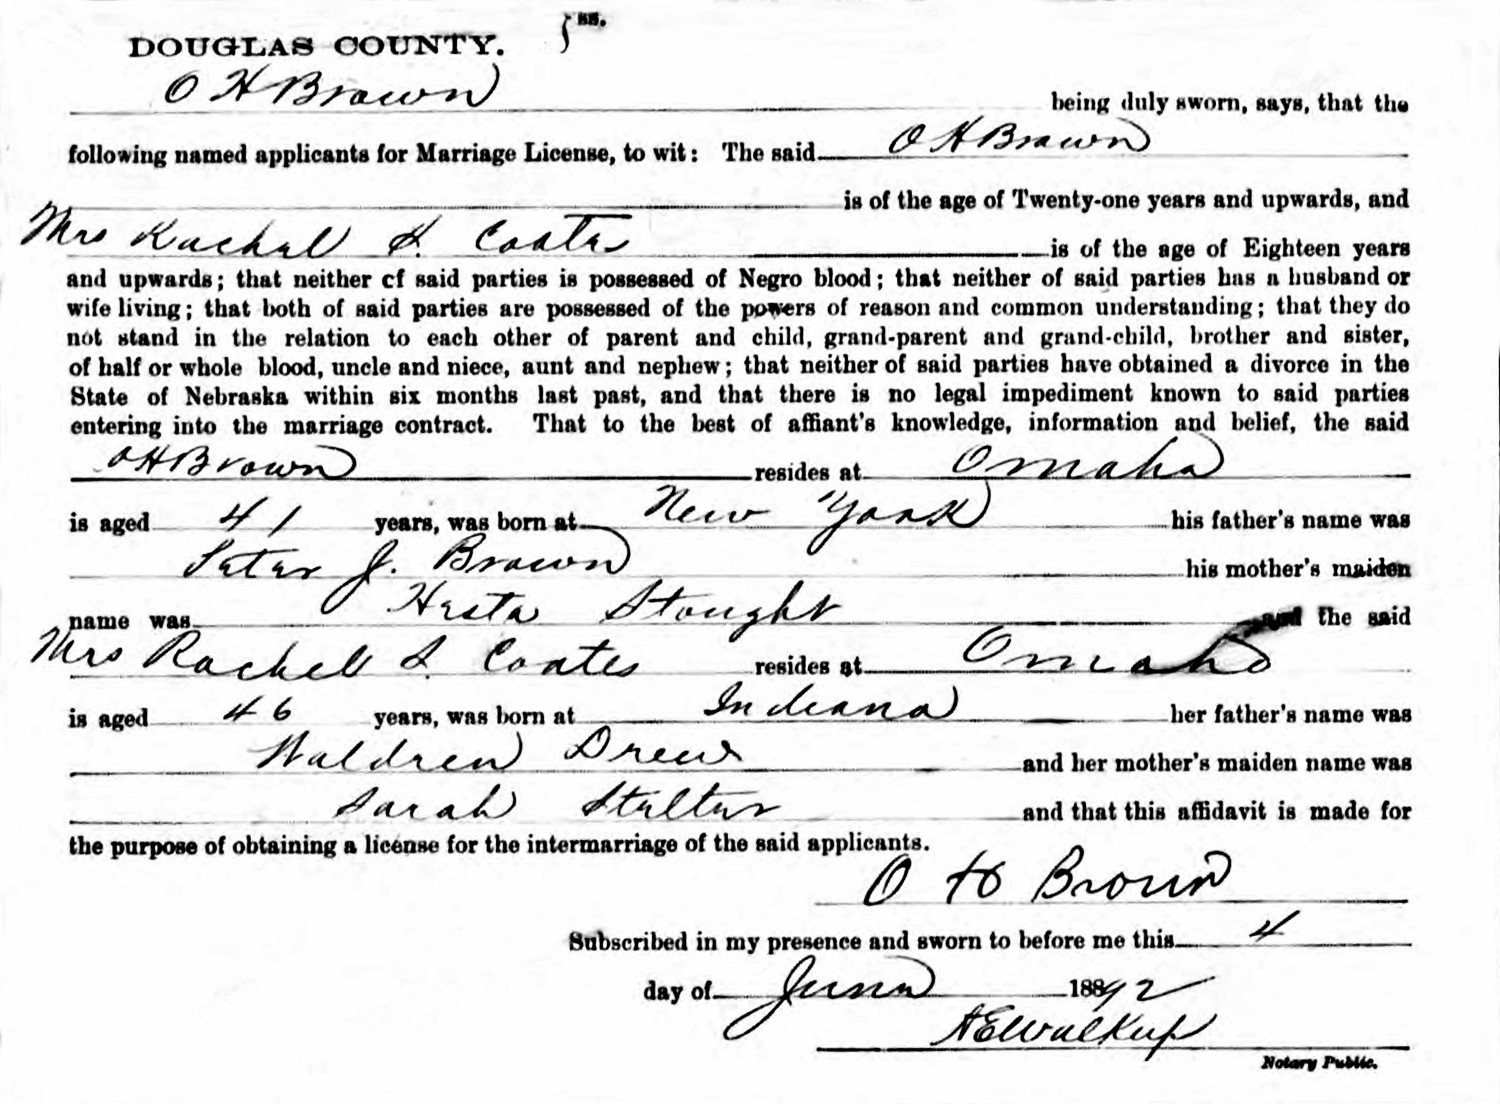 DOUGLAS COUNTY. } ss.
O H Brown being duly sworn, says, that the
following named applicants for Marriage License, to wit: The said O H Brown
is of the age of Twenty-one years and upwards, and
Mrs Rachel S. Coates is of the age of Eighteen years
and upwards; that neither of said parties is possessed of Negro blood; that neither of said parties has a husband or
wife living; that both of said parties are possessed of the powers of reason and common understanding; that they do
not stand in the relation to each other of parent and child, grand-parent and grand-child, brother and sister,
of half or whole blood, uncle and niece, aunt and nephew; that neither of said parties have obtained a divorce in the
State of Nebraska within six months last past, and that there is no legal impediment known to said parties
entering into the marriage contract. That to the best of affiant's knowledge, information and belief, the said
O H Brown resides at Omaha
is aged 41 years, was born at New York his father's name was
Peter J. Brown his mother's maiden
name was Hester and the said
Mrs Rachel S. Coates resides at Omaha
is aged 46 years, was born at Indiana her father's name was
Waldren Drew and her mother's maiden name was
Sarah Stelter and that this affidavit is made for
the purpose of obtaining a license for the intermarriage of the said applicants.
O H Brown
Subscribed in my presence and sworn to before me this 4
day of June 1892
A E Walkup
Notary Public.